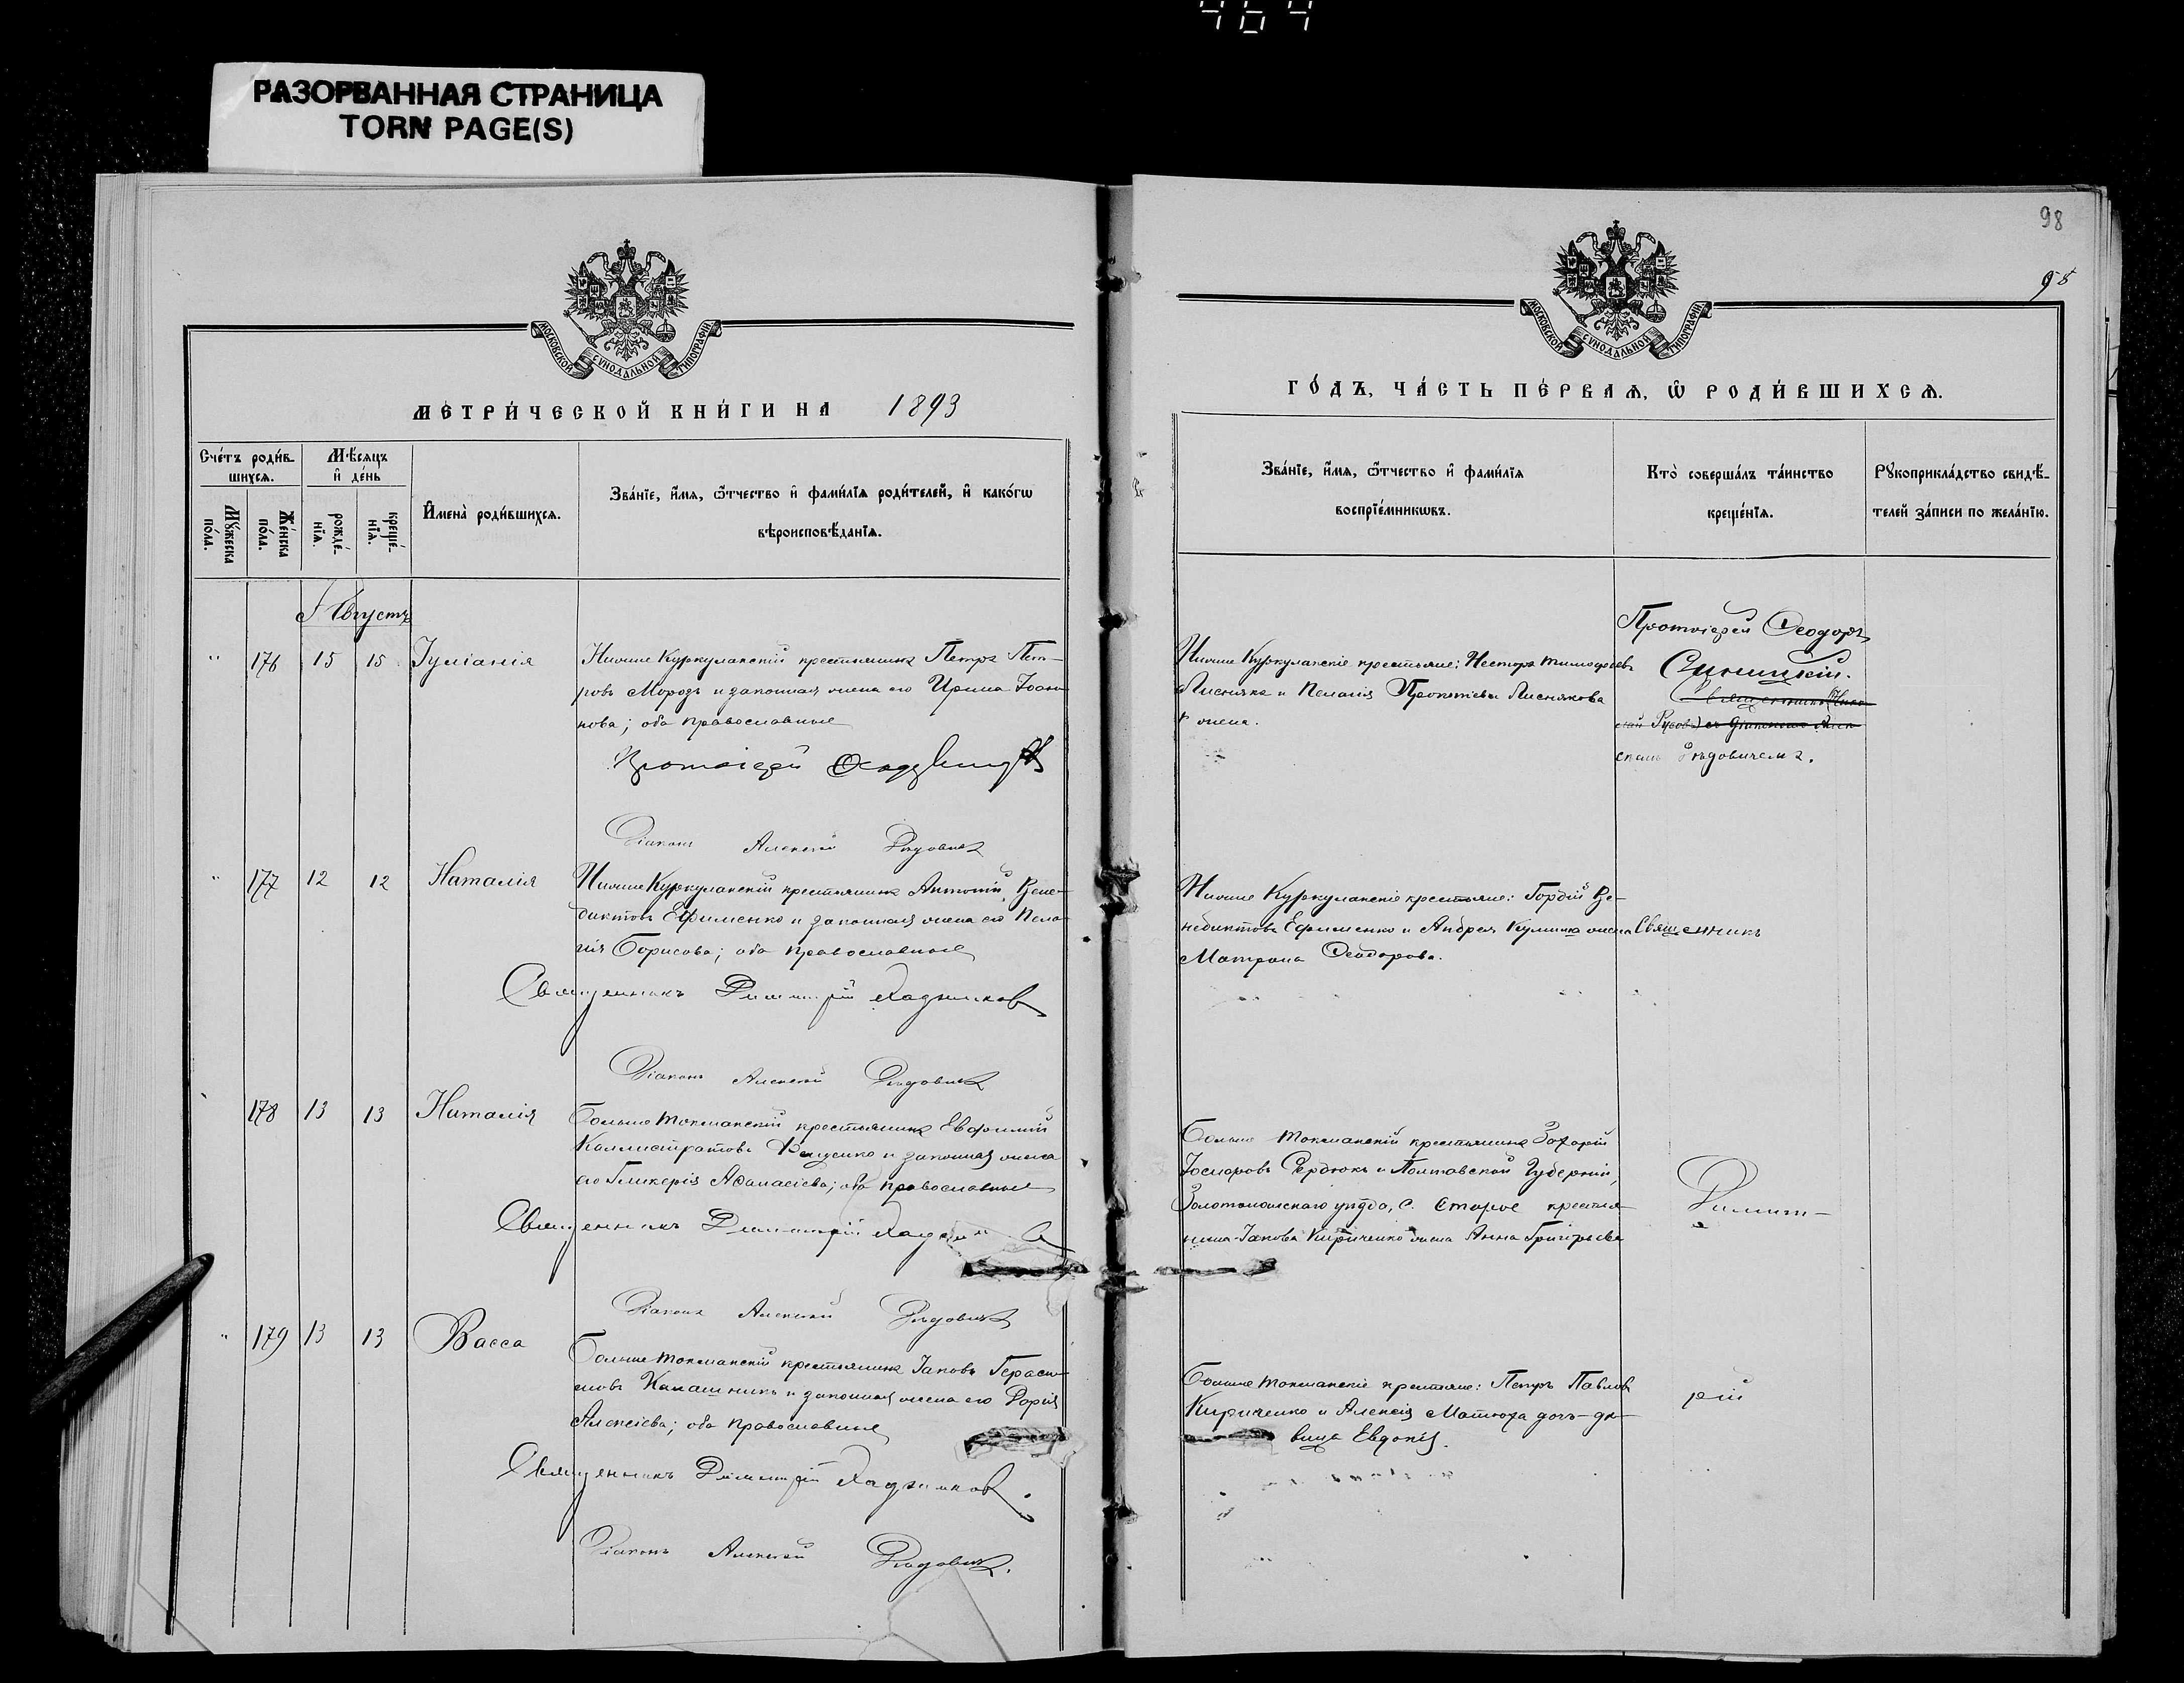 464
РАЗОРВАННАЯ СТРАНИЦА
TORN PAGE(S)
98
95
МОСКОВСКОЙ СѴНОДАЛЬНОЙ ТИПОГРАФІИ
МЕТРИ́ЧЕСКОЙ КНИ́ГИ НА 1893
Сче́тъ роди́в-
шихсѧ.
Мѣ́сѧцъ
и҆ де́нь
Мꙋ́жеска
по́ла.
Же́нска
по́ла.
рожде́-
нїѧ.
креще́-
нїѧ.
И҆мена̀ роди́вшихсѧ.
Зва́нїе, и҆́мѧ, ѻ҆́тчество и҆ фами́лїѧ роди́телей, и҆ како́гѡ
вѣроисповѣ́данїѧ.
Августъ
" 176 15 15 Іуліанія
Нижне Куркулакскій крестьянинъ Петръ Пет-
ровъ Морозъ и законная жена его Ирина Іоан-
нова; оба православные
Протоіерей
Діаконъ Алексій
" 177 12 12 Наталія
Нижне Куркулакскій крестьянинъ Антоній Вене-
диктовъ Ефименко и законная жена его Пела-
гія Борисова; оба православные
Священникъ Димитрій
Діаконъ Алексій
178 13 13 Наталія
Больше Токмакскій крестьянинъ Евфимій
Каллистратовъ и законная жена
его Гликерія Аѳанасіева; оба православные
Священникъ Димитрій
Діаконъ Алексій
" 179 13 13 Васса
Больше Токмакскій крестьянинъ Іаковъ Гераси-
мовъ Калашникъ и законная жена его Дарія
Алексіева; оба православные
Священникъ Димитрій
Діаконъ Алексій
МОСКОВСКОЙ СѴНОДАЛЬНОЙ ТИПОГРАФІИ
ГО́ДЪ, ЧА́СТЬ ПЕ́РВАѦ, Ѡ҆ РОДИ́ВШИХСѦ.
Зва́нїе, и҆́мѧ, ѻ҆́тчество и҆ фами́лїѧ
воспрїе́мникѡвъ.
Кто̀ соверша́лъ та́инство
креще́нїѧ.
Рꙋкоприкла́дство свидѣ́-
телей за́писи по жела́нїю.
Нижне Куркулакскіе крестьяне: Несторъ Тимоѳеевъ
Лиснякъ и Пелагія Прокопіева Лиснякова
жена.
Протоіерей Ѳеодоръ
Синицкій.
Нижне Куркулакскіе крестьяне: Гордій Ве-
недиктовъ Ефименко и Андрея Кулика жена
Матрона Ѳеодорова.
Священникъ
Больше Токмакскій крестьянинъ Захарій
Сердюкъ и Полтавской Губерніи,
Золотоношскаго уѣзда, с. Старое крестья-
нина Іакова Кириченко жена Анна Григорьева
Димит-
Больше Токмакскіе крестьяне: Петръ Павловъ
Кириченко и Алексія Матюха дочь-дѣ-
вица Евдокія.
рій